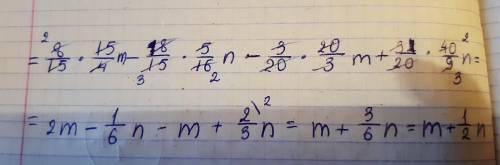 = 8/15 · 15/4 m - 8/15 · 5/16 n - 3/20 · 20/3 m + 3/20 · 40/9 n =
= 2m - 1/6 n - m + 2/3 \2 n = m + 3/6 n = m + 1/2 n